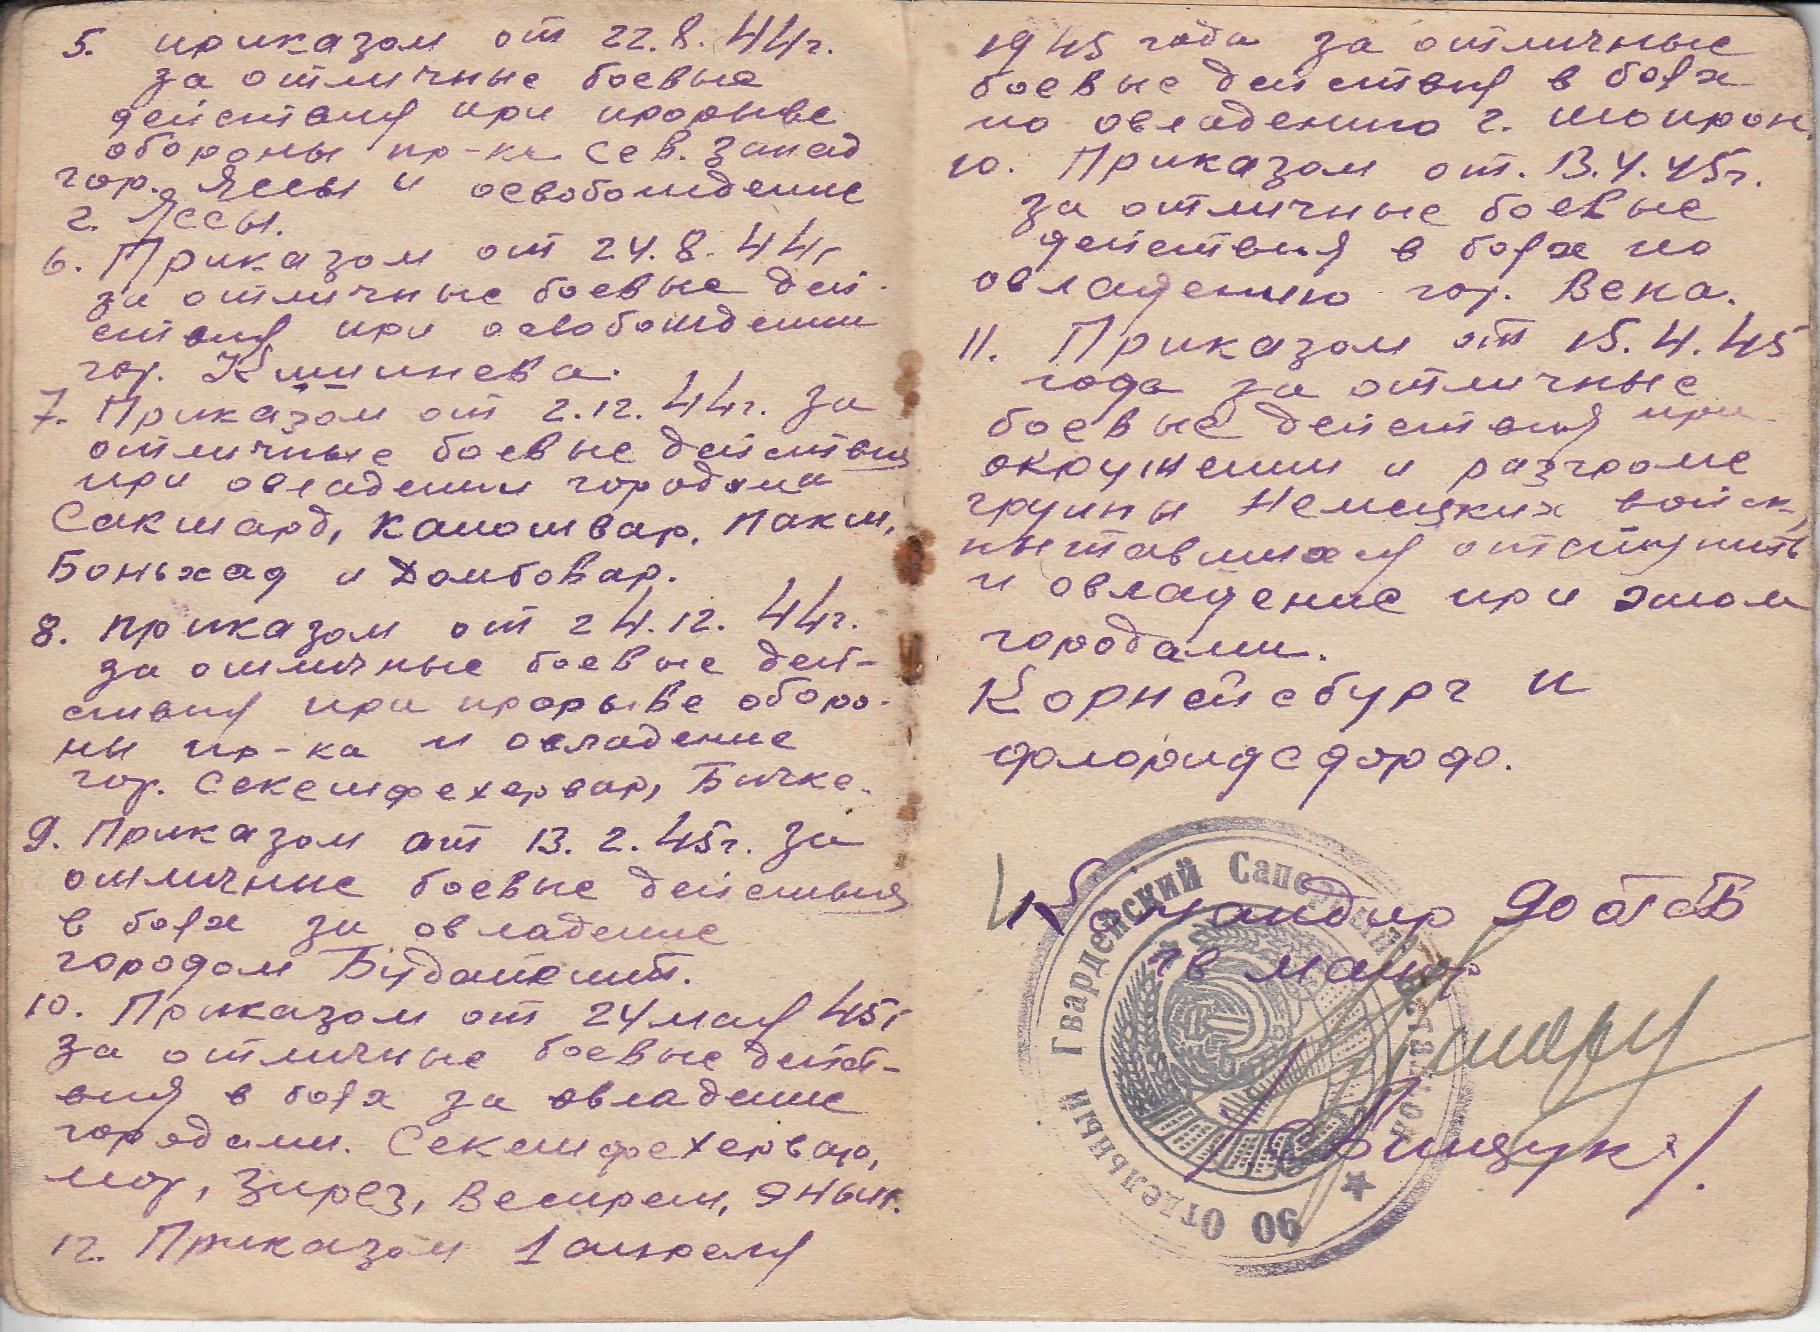 5. приказом от 22.8.44г.
за отличные боевые
действия при прорыве
обороны пр-ка Сев. Запад
гор. Яссы и освобождение
г. Яссы.
6. Приказом от 24.8.44г
за отличные боевые дей-
ствия при освобождении
гор. Кишинева.
7. Приказом от 2.12.44г. за
отличные боевые действия
при овладении городами
Сакшард, Капошвар, Пакш,
Боньхад и Домбовар.
8. приказом от 24.12.44г.
за отличные боевые дей-
ствия при прорыве оборо-
ны пр-ка и овладение
гор. Секешфехервар, Бичке.
9. Приказом от 13.2.45г. за
отличные боевые действия
в боях за овладение
городом Будапешт.
10. Приказом от 24 мая 45г
за отличные боевые дейст-
вия в боях за овладение
городами. Секешфехервар,
мор, Зирез, Веспрем, Эньинг.
12. Приказом 1 апреля
1945 года за отличные
боевые действия в боях
по овладению г. Шопрон
10. Приказом от. 13.4.45г.
за отличные боевые
действия в боях по
овладению гор. Вена.
11. Приказом от 15.4.45
года за отличные
боевые действия при
окружении и разгроме
группы Немецких войск,
пытавшихся отступить
и овладение при этом
городами.
Корнейсбург и
флоридсдорф.
Командир 90 отсб
гв майор
/Свищук/.
90 Отдельный Гвардейский Саперный Батальон